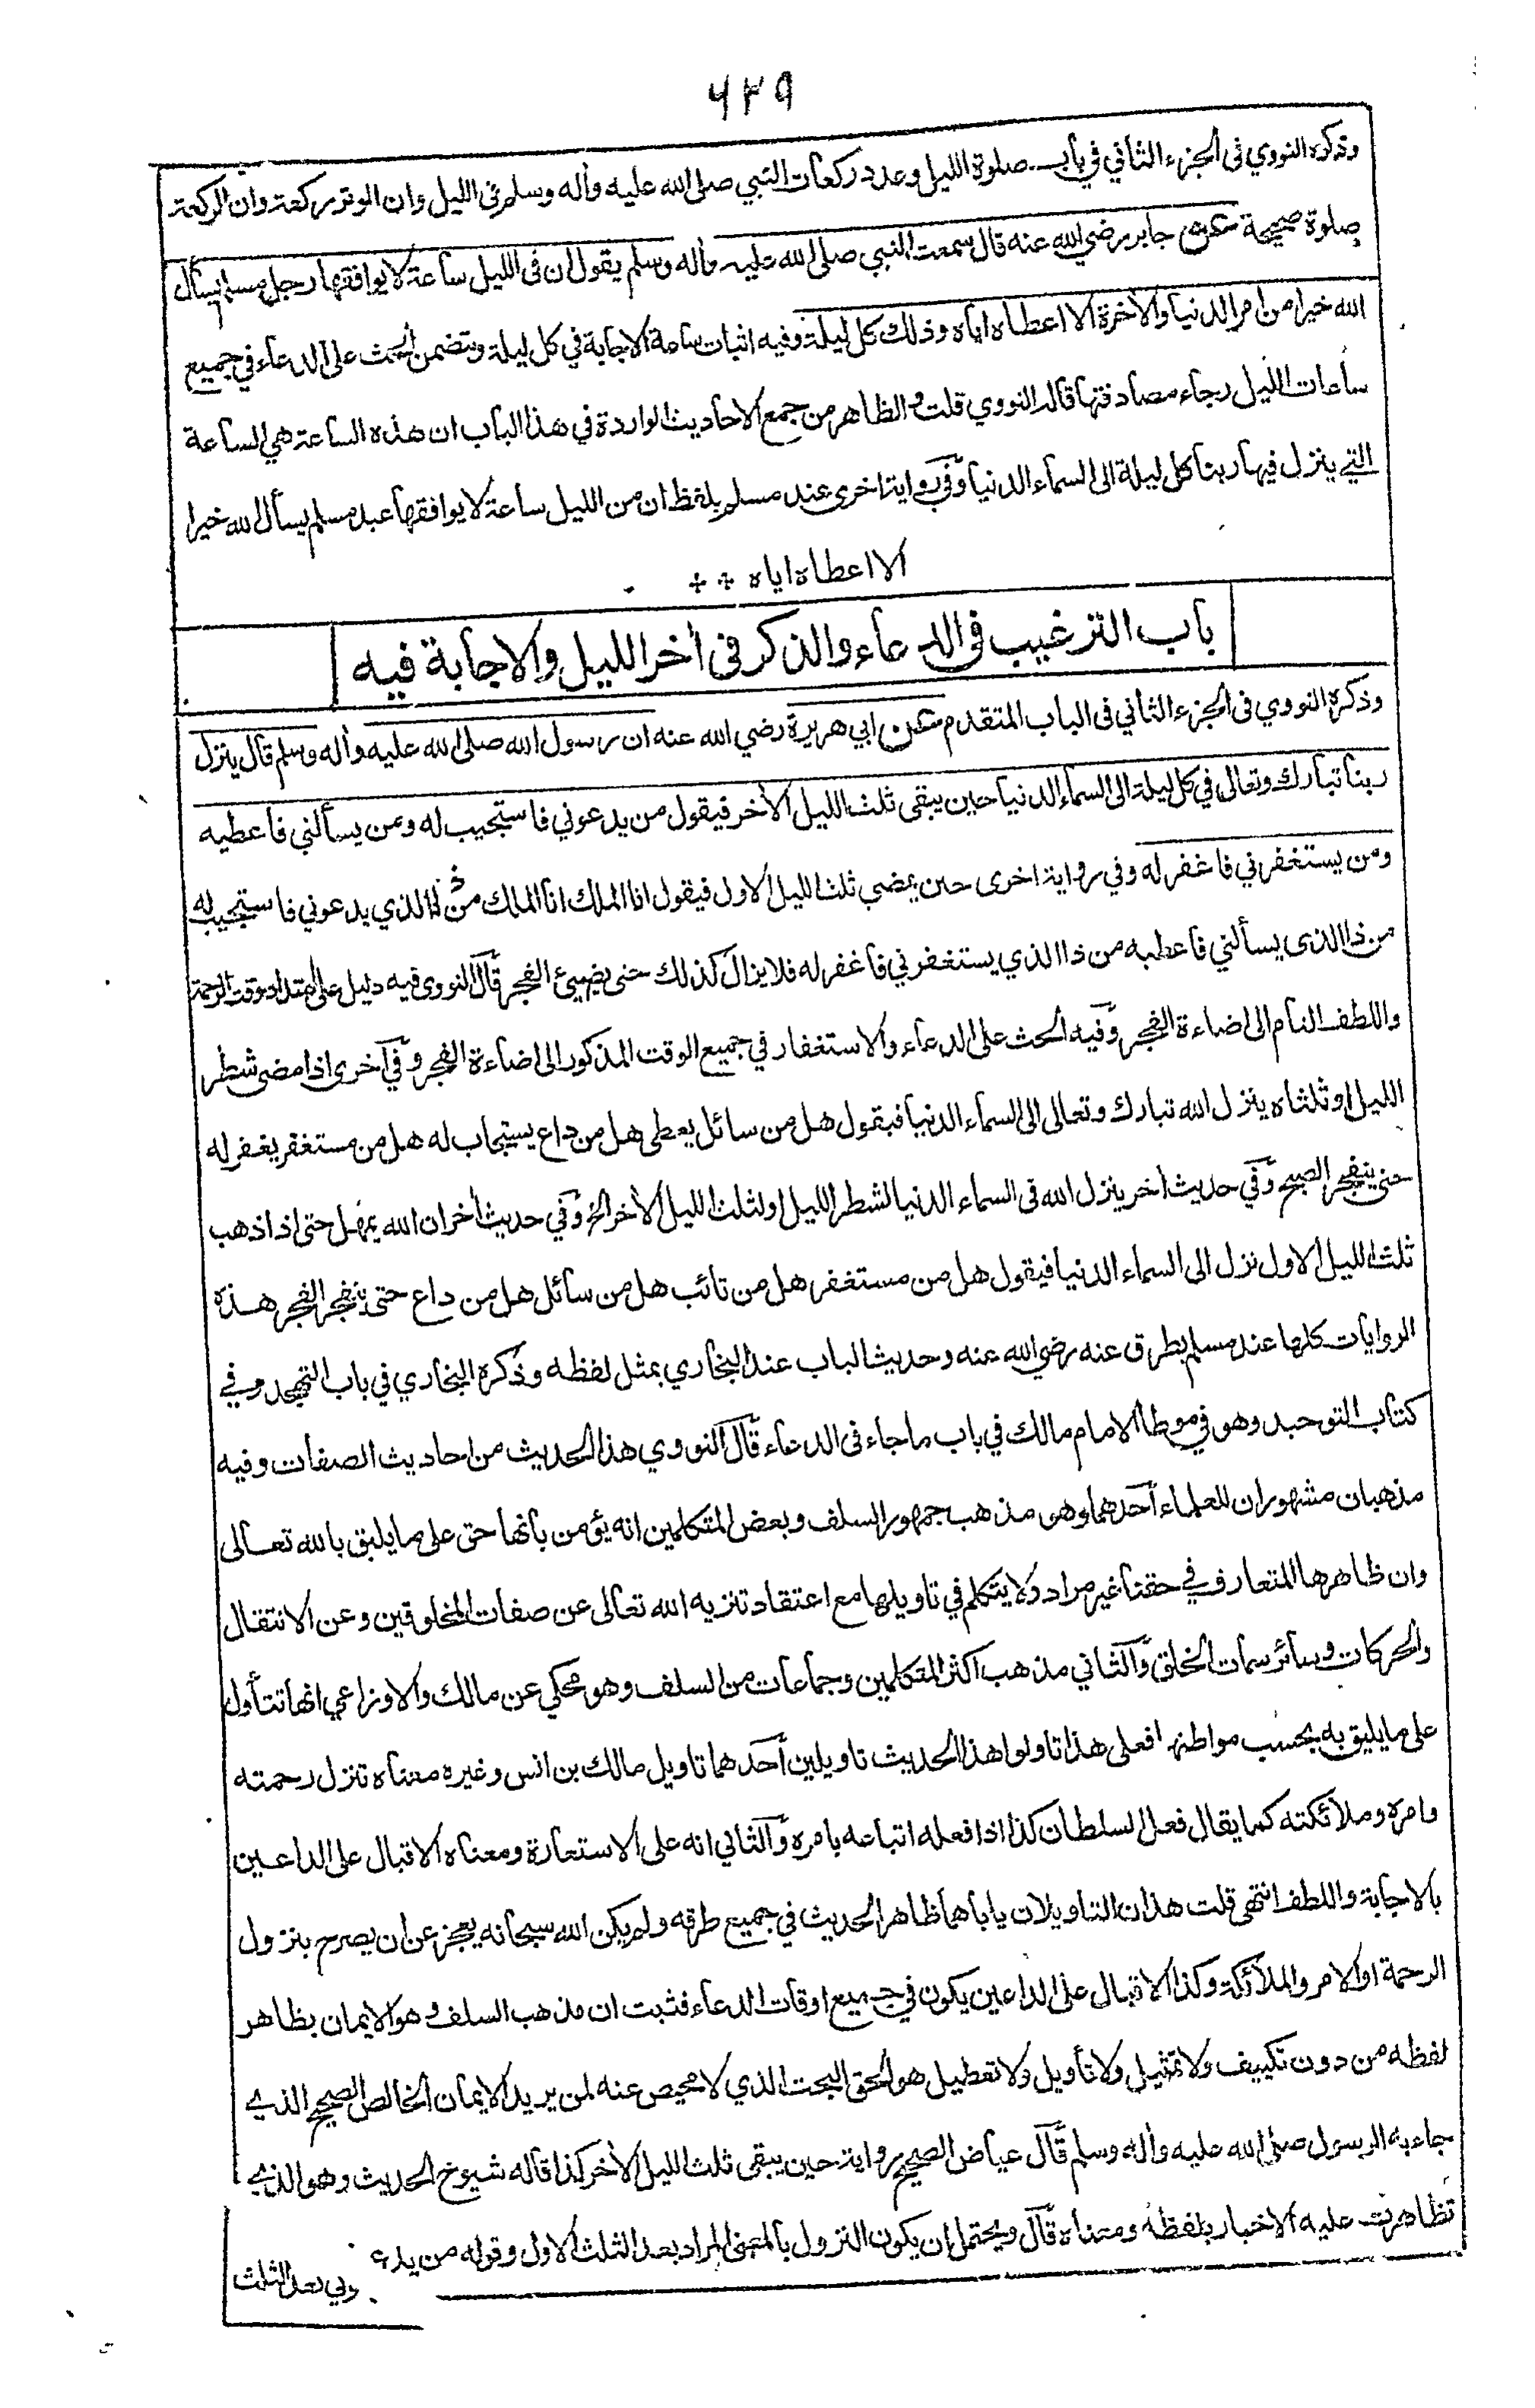 ٦٢٩
وذكره النووي فى الجزء الثاني في باب صلوة الليل وعدد ركعات النبي صلى الله عليه وأله وسلم فى الليل وان الوتر ركعة وان الركعة
صلوة صحيحة عن جابر رضي الله عنه قال سمعت النبي صلى الله عليه وأله وسلم يقول ان فى الليل ساعة لا يوافقها رجل مسلم يسأل
الله خيرا من امر الدنيا والأخرة الا اعطاه اياه وذلك كل ليلة وفيه اثبات ساعة الاجابة في كل ليلة ويتضمن الحث على الدعاء في جميع
ساعات الليل رجاء مصادفتها قاله النووي قلت والظاهر من جمع الاحاديث الواردة في هذا الباب ان هذه الساعة هي الساعة
التي ينزل فيها ربنا كل ليلة الى السماء الدنيا وفي رواية اخرى عند مسلم بلفظ ان من الليل ساعة لا يوافقها عبد مسلم يسأل الله خيرا
الا اعطاه اياه ÷ ÷
باب الترغيب فى الدعاء والذكر فى أخر الليل والاجابة فيه
وذكره النووي فى الجزء الثاني فى الباب المتقدم عن ابي هريرة رضي الله عنه ان رسول الله صلى الله عليه وأله وسلم قال ينزل
ربنا تبارك وتعالى في كل ليلة الى السماء الدنيا حين يبقى ثلث الليل الأخر فيقول من يدعوني فاستجيب له ومن يسألني فاعطيه
ومن يستغفرني فاغفر له وفي رواية اخرى حين يمضي ثلث الليل الاول فيقول انا الملك انا الملك من ذا الذي يدعوني فاستجيب له
من ذا الذى يسألني فاعطيه من ذا الذي يستغفرني فاغفر له فلا يزال كذلك حتى يضيئ الفجر قال النووى فيه دليل على امتداد وقت الرحمة
واللطف التام الى اضاءة الفجر وفيه الحث على الدعاء والاستغفار في جميع الوقت المذكور الى اضاءة الفجر وفي أخرى اذا مضى شطر
الليل او ثلثاه ينزل الله تبارك وتعالى الى السماء الدنيا فيقول هل من سائل يعطى هل من داع يستجاب له هل من مستغفر يغفر له
حتى ينفجر الصبح وفي حديث أخر ينزل الله فى السماء الدنيا لشطر الليل او لثلث الليل الأخر الخ وفي حديث أخر ان الله يمهل حتى اذا ذهب
ثلث الليل الاول نزل الى السماء الدنيا فيقول هل من مستغفر هل من تائب هل من سائل هل من داع حتى ينفجر الفجر هذه
الروايات كلها عند مسلم بطرق عنه رضي الله عنه وحديث الباب عند البخاري بمثل لفظه وذكره البخاري في باب التهجد وفي
كتاب التوحيد وهو في موطأ الامام مالك في باب ما جاء فى الدعاء قال النووي هذا الحديث من احاديث الصفات وفيه
مذهبان مشهوران للعلماء أحدهما وهو مذهب جمهور السلف وبعض المتكلمين انه يؤمن بأنها حق على ما يليق بالله تعالى
وان ظاهرها المتعارف في حقنا غير مراد ولا يتكلم في تاويلها مع اعتقاد تنزيه الله تعالى عن صفات المخلوقين وعن الانتقال
والحركات وسائر سمات الخلق والثاني مذهب اكثر المتكلمين وجماعات من السلف وهو محكي عن مالك والاوزاعي انها تتأول
على ما يليق به بحسب مواطنها فعلى هذا تاولوا هذا الحديث تاويلين أحدهما تاويل مالك بن انس وغيره معناه تنزل رحمته
وامره وملائكته كما يقال فعل السلطان كذا اذا فعله اتباعه بامره والثاني انه على الاستعارة ومعناه الاقبال على الداعين
بالاجابة واللطف انتهى قلت هذان التاويلان ياباهما ظاهر الحديث في جميع طرقه ولم يكن الله سبحانه يعجز عن ان يصرح بنزول
الرحمة او الامر والملائكة وكذا الاقبال على الداعين يكون في جميع اوقات الدعاء فثبت ان مذهب السلف وهو الايمان بظاهر
لفظه من دون تكييف ولا تمثيل ولا تأويل ولا تعطيل هو الحق البحت الذي لا محيص عنه لمن يريد الايمان الخالص الصحيح الذي
جاء به الرسول صلى الله عليه وأله وسلم قال عياض الصحيح رواية حين يبقى ثلث الليل الأخر كذا قاله شيوخ الحديث وهو الذي
تظاهرت عليه الاخبار بلفظه ومعناه قال ويحتمل ان يكون النزول بالمعنى المراد بعد الثلث الاول وقوله من يدع
وني بعد الثلث